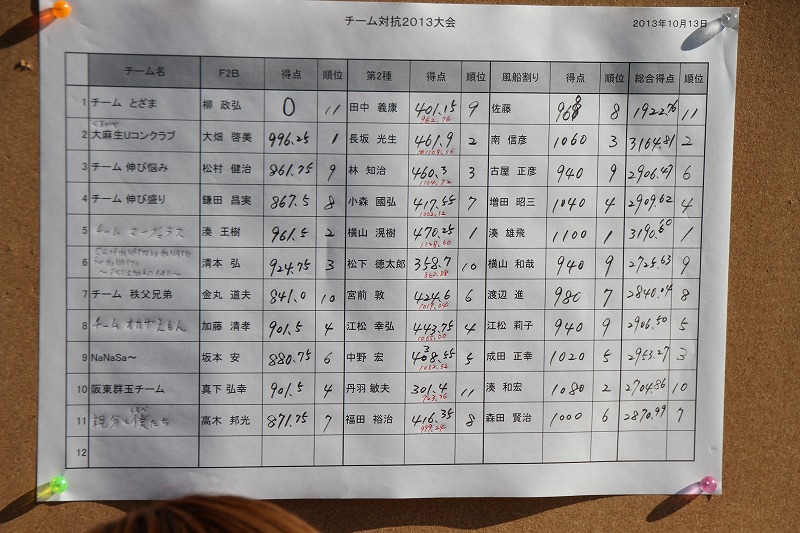 チーム対抗2013大会
2013年10月13日
チーム名 F2B 得点 順位 第2種 得点 順位 風船割り 得点 順位 総合得点 順位
1 チーム とざま 柳 政弘 0 11 田中 義康 401.15 9 佐藤 960 8 1922.76 11
962.76
2 大麻生Uコンクラブ 大畑 啓美 996.25 1 長坂 光生 461.9 2 南 信彦 1060 3 3164.81 2
3 チーム 伸び悩み 松村 健治 861.75 9 林 知治 460.3 3 古屋 正彦 940 9 2906.47 6
1104.72
4 チーム 伸び盛り 鎌田 昌実 867.5 8 小森 國弘 417.55 7 増田 昭三 1040 4 2909.62 4
1002.12
5 チーム 湊 王樹 961.5 2 横山 滉樹 470.25 1 湊 雄飛 1100 1 3190.10 1
6 清本 弘 924.75 3 松下 徳太郎 358.7 10 横山 和哉 940 9 2725.63 9
860.88
7 チーム 秩父兄弟 金丸 道夫 841.0 10 宮前 敦 424.6 6 渡辺 進 980 7 2840.04 8
1019.04
8 チーム オカザえもん 加藤 清孝 901.5 4 江松 幸弘 443.75 4 江松 莉子 940 9 2906.50 5
1065.00
9 NaNaSa～ 坂本 安 880.75 6 中野 宏 438.55 5 成田 正幸 1020 5 2953.27 3
1052.52
10 阪東群玉チーム 真下 弘幸 901.5 4 丹羽 敏夫 301.4 11 湊 和宏 1080 2 2704.86 10
723.36
11 親分と僕たち 高木 邦光 871.75 7 福田 裕治 416.35 8 森田 賢治 1000 6 2870.99 7
999.24
12